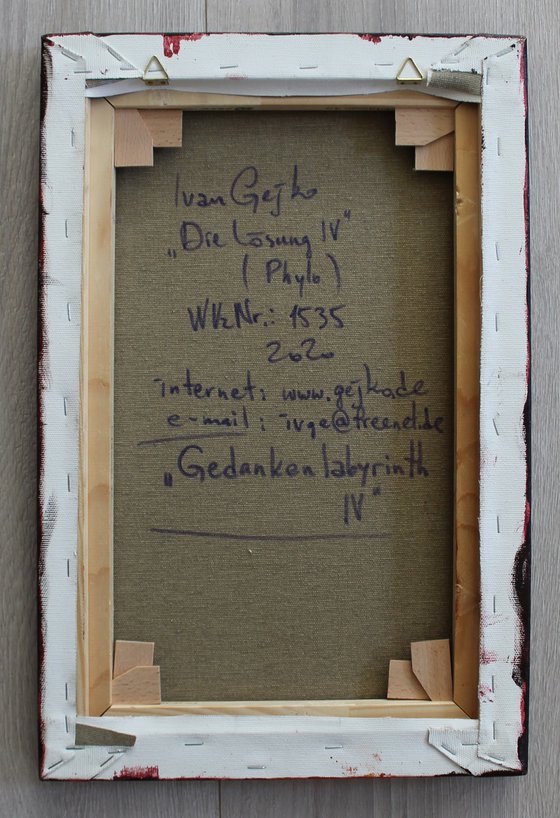 Ivan Gejko
„Die Lösung IV“
( Phylo )
WkNr.: 1535
2020
internet: www.gejko.de
e-mail: ivge@freenet.de
„Gedankenlabyrinth
IV“